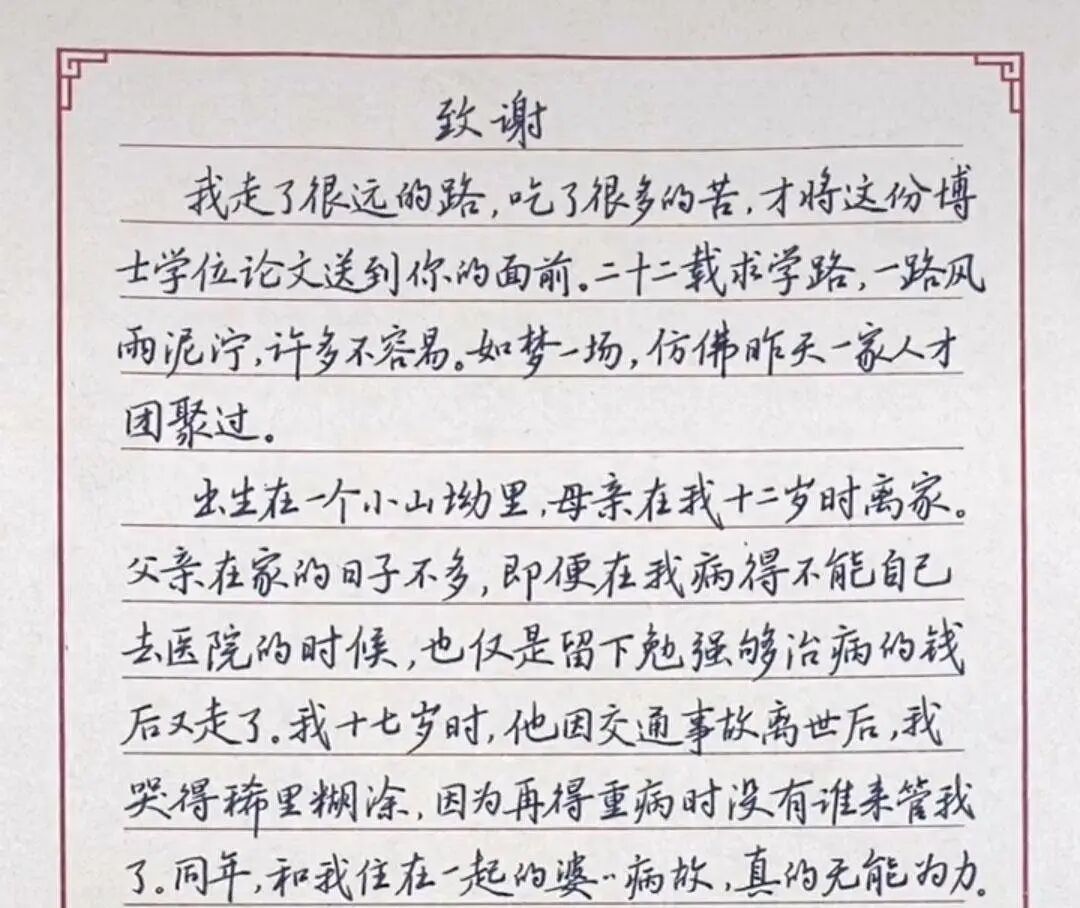 致谢
我走了很远的路，吃了很多的苦，才将这份博
士学位论文送到你的面前。二十二载求学路，一路风
雨泥泞，许多不容易。如梦一场，仿佛昨天一家人才
团聚过。
出生在一个小山坳里，母亲在我十二岁时离家。
父亲在家的日子不多，即便在我病得不能自己
去医院的时候，也仅是留下勉强够治病的钱
后又走了。我十七岁时，他因交通事故离世后，我
哭得稀里糊涂，因为再得重病时没有谁来管我
了。同年，和我住在一起的婆〃病故，真的无能为力。